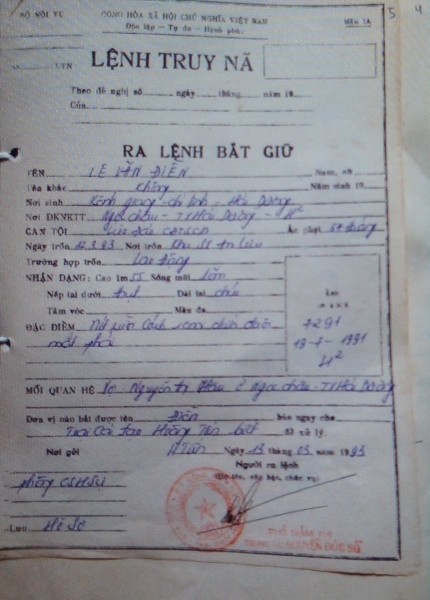 BỘ NỘI VỤ
CỘNG HÒA XÃ HỘI CHỦ NGHĨA VIỆT NAM
Độc lập - Tự do - Hạnh phúc
Mẫu 1A
5 4
LỆNH TRUY NÃ
Theo đề nghị số ngày tháng năm 19
Của
RA LỆNH BẮT GIỮ
TÊN LÊ VĂN ĐIỀN Nam, nữ
Tên khác Không Năm sinh 19
Nơi sinh Chí linh - Hải Dương
Nơi ĐKNKTT Ngọc châu - TX Hải Dương - H2
CAN TỘI Lừa đảo Án phạt tháng
Ngày trốn 12.3.93 Nơi trốn Khu
Trường hợp trốn Lao động
NHẬN DẠNG: Cao 1m 55 Sống mũi lõm
Nếp tai dưới Dái tai chúc
Tầm vóc Màu da
ĐẶC ĐIỂM Nốt ruồi Cách
mắt phải
Ảnh
7291
19-7-1991
H2
MỐI QUAN HỆ Vợ: Nguyễn Thị ở Ngọc châu - TX Hải Dương
Đơn vị nào bắt được tên Điền báo ngay cho
Trại Cải tạo Hoàng Tiến biết để xử lý.
Nơi gửi H Tiến Ngày 13 tháng 03 năm 1993
Người ra lệnh
(Họ tên, cấp bậc, chức vụ)
phòng
Lưu Hồ Sơ
PHÓ GIÁM THỊ
NGUYỄN ĐỨC SỐ